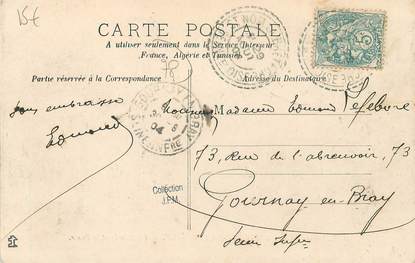 15€
CARTE POSTALE
A utiliser seulement dans le Service Intérieur
France, Algérie et Tunisie
Partie réservée à la Correspondance
Adresse du Destinataire
Madame Edmond Lefebvre
vous embrasse
Edmond
73, Rue de l'abreuvoir, 73
Gournay-en-Bray
Seine Infre
Collection
J.P.M.